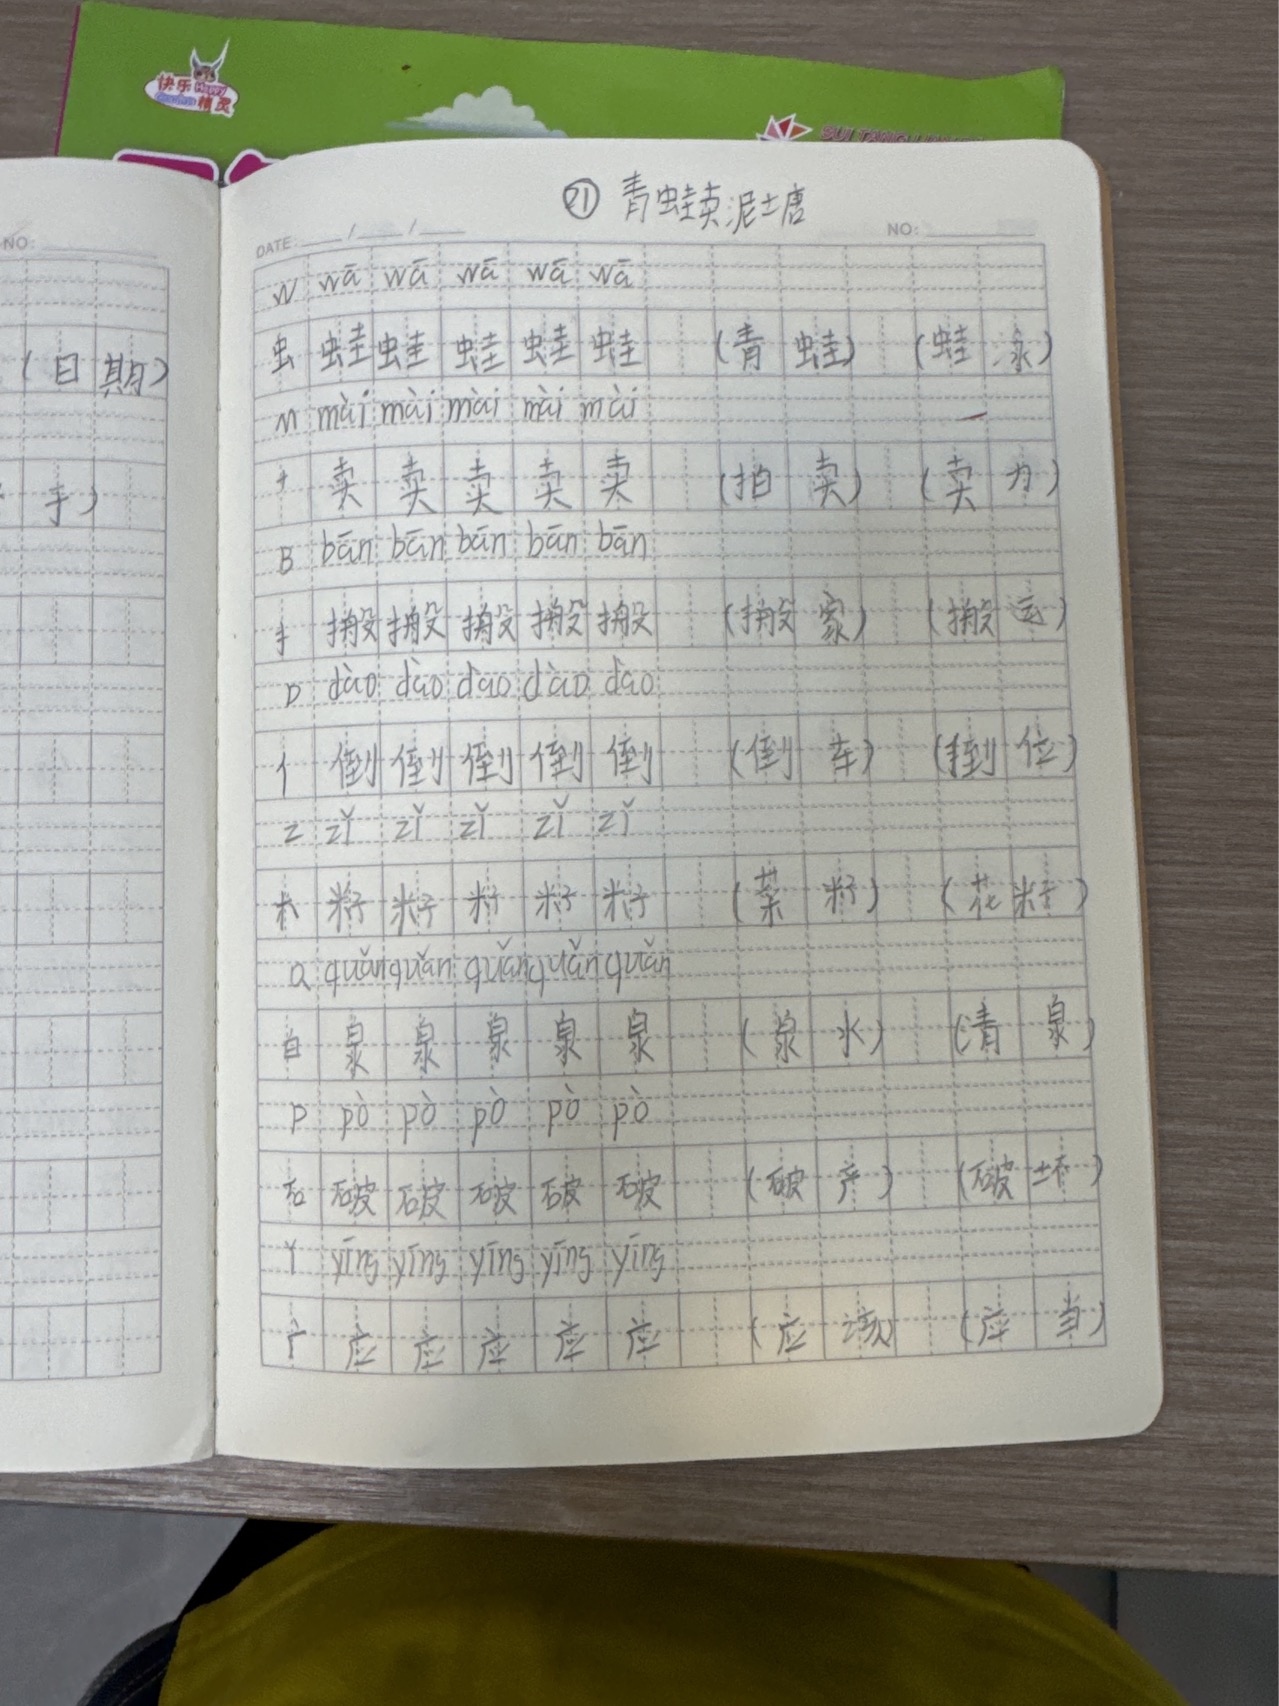 快乐 Happy
精灵
㉑ 青蛙卖泥塘
NO:
DATE: / /
NO:
W wā wā wā wā wā
虫 蛙 蛙 蛙 蛙 蛙 (青 蛙) (蛙 泳)
(日 期)
M mài mài mài mài mài
十 卖 卖 卖 卖 卖 (拍 卖) (卖 力)
手)
B bān bān bān bān bān
扌 搬 搬 搬 搬 搬 (搬 家) (搬 运)
D dào dào dào dào dào
亻 倒 倒 倒 倒 倒 (倒 车) (倒 位)
Z zǐ zǐ zǐ zǐ zǐ
米 籽 籽 籽 籽 籽 (菜 籽) (花 籽)
Q quǎn quǎn quǎn quǎn quǎn
白 泉 泉 泉 泉 泉 (泉 水) (清 泉)
P pò pò pò pò pò
石 破 破 破 破 破 (破 产) (破 坏)
Y yīng yīng yīng yīng yīng
广 应 应 应 应 应 (应 该) (应 当)